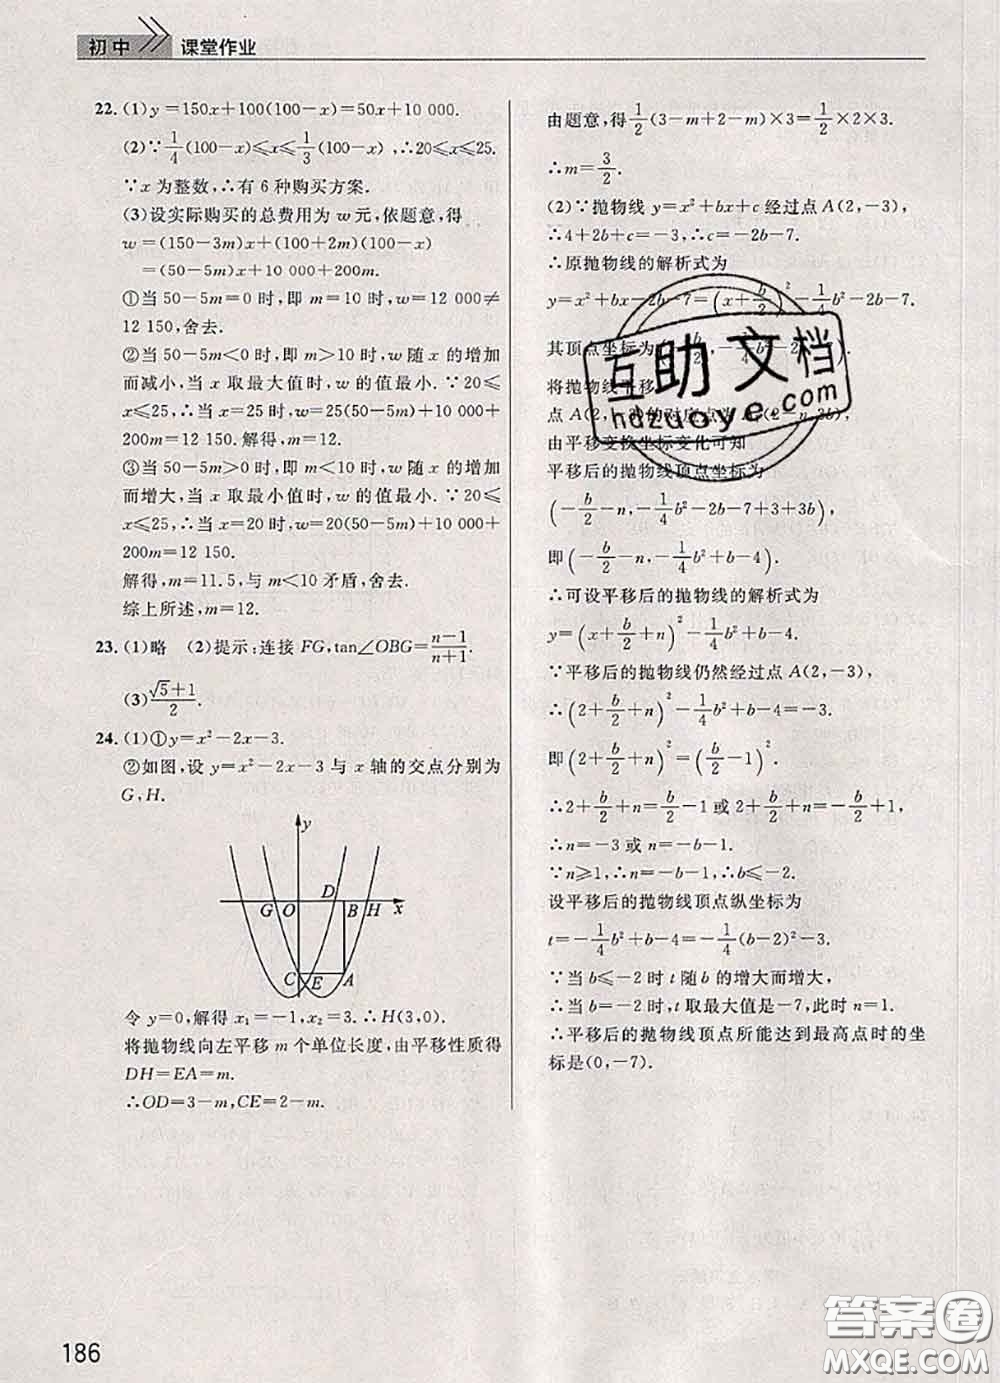 初中 课堂作业
22. (1)y=150x+100(100-x)=50x+10 000.
(2)∵1/4(100-x)⩽x⩽1/3(100-x),∴20⩽x⩽25.
∵x 为整数,∴有 6 种购买方案.
(3)设实际购买的总费用为 w 元,依题意,得
w=(150-3m)x+(100+2m)(100-x)
=(50-5m)x+10 000+200m.
①当 50-5m=0 时,即 m=10 时,w=12 000≠
12 150,舍去.
②当 50-5m<0 时,即 m>10 时,w 随 x 的增加
而减小,当 x 取最大值时,w 的值最小.∵20⩽
x⩽25,∴当 x=25 时,w=25(50-5m)+10 000+
200m=12 150.解得,m=12.
③当 50-5m>0 时,即 m<10 时,w 随 x 的增加
而增大,当 x 取最小值时,w 的值最小.∵20⩽
x⩽25,∴当 x=20 时,w=20(50-5m)+10 000+
200m=12 150.
解得,m=11.5,与 m<10 矛盾,舍去.
综上所述,m=12.
23. (1)略 (2)提示:连接 FG,tan∠OBG=(n-1)/(n+1).
(3)(√5+1)/2.
24. (1)①y=x²-2x-3.
②如图,设 y=x²-2x-3 与 x 轴的交点分别为
G,H.
y
D
G O B H x
C E A
令 y=0,解得 x₁=-1,x₂=3.∴H(3,0).
将抛物线向左平移 m 个单位长度,由平移性质得
DH=EA=m.
∴OD=3-m,CE=2-m.
由题意,得1/2(3-m+2-m)×3=1/2×2×3.
∴m=3/2.
(2)∵抛物线 y=x²+bx+c 经过点 A(2,-3),
∴4+2b+c=-3,∴c=-2b-7.
∴原抛物线的解析式为
y=x²+bx-2b-7=(x+b/2)²-1/4b²-2b-7.
其顶点坐标为
将抛物线平移
点 A(2,-3)的对应点为
由平移变换坐标变化可知
平移后的抛物线顶点坐标为
(-b/2-n,-1/4b²-2b-7+3+3b),
即(-b/2-n,-1/4b²+b-4).
∴可设平移后的抛物线的解析式为
y=(x+b/2+n)²-1/4b²+b-4.
∵平移后的抛物线仍然经过点 A(2,-3),
∴(2+b/2+n)²-1/4b²+b-4=-3.
即(2+b/2+n)²=(b/2-1)².
∴2+b/2+n=b/2-1 或 2+b/2+n=-b/2+1,
∴n=-3 或 n=-b-1.
∵n⩾1,∴n=-b-1,∴b⩽-2.
设平移后的抛物线顶点纵坐标为
t=-1/4b²+b-4=-1/4(b-2)²-3.
∵当 b⩽-2 时 t 随 b 的增大而增大,
∴当 b=-2 时,t 取最大值是-7,此时 n=1.
∴平移后的抛物线顶点所能达到最高点时的坐
标是(0,-7).
互助文档
hdzuoye.com
186
答案圈
MXQE.COM